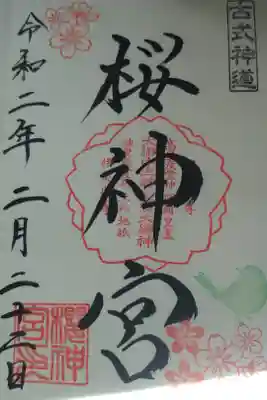 古式神道
桜神宮
令和二年二月二十二日
櫻神宮印